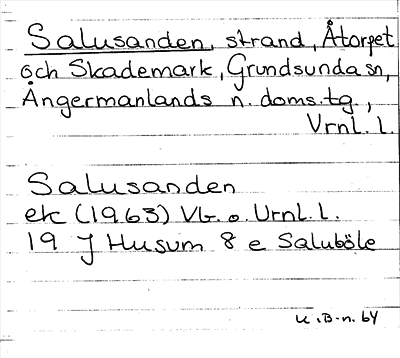 Salusanden, strand, Åtorpet
och Skademark, Grundsunda sn,
Ångermanlands n. doms.tg.,
Vrnl. l.
Salusanden
ek (1963) Vb. o. Vrnl. L.
19 J Husum 8 e Saluböle
K.B-n. 64